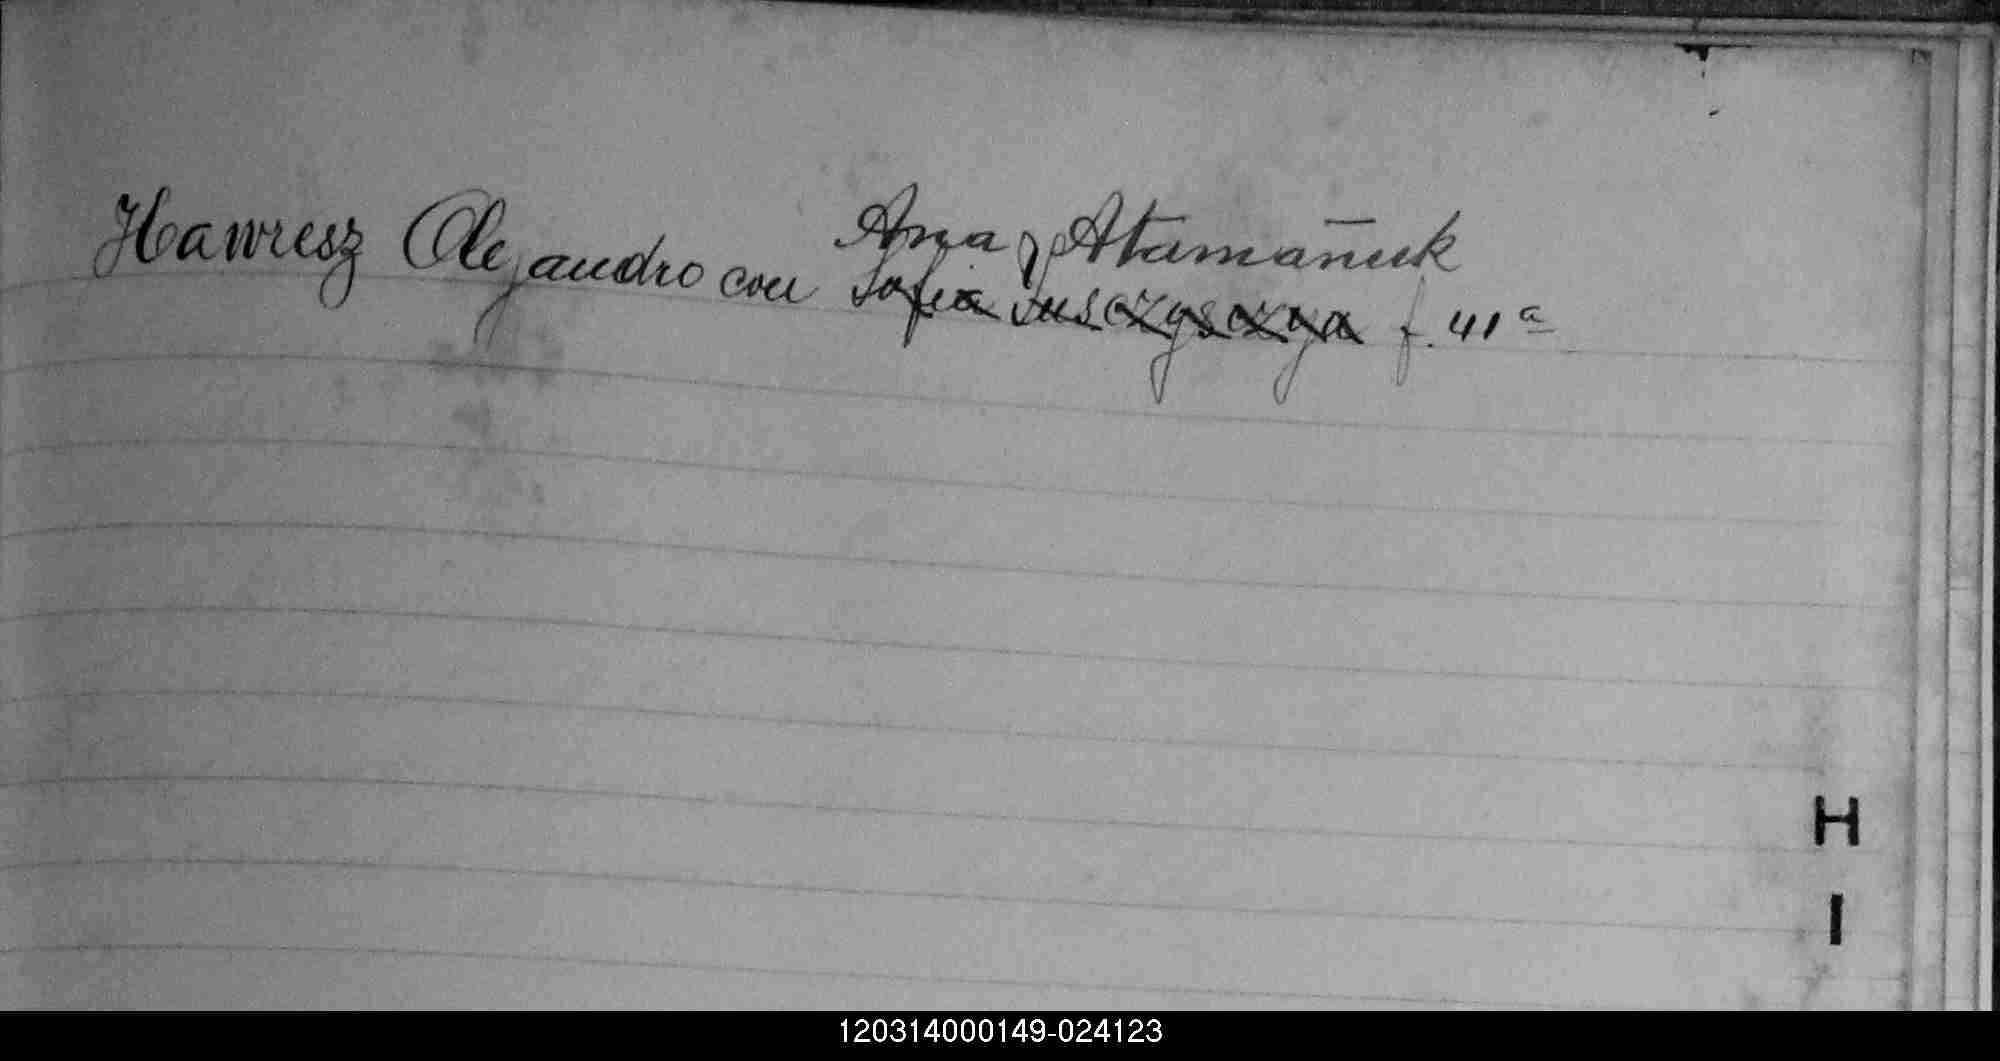 Ana Atamañuk
Hawresz Alejandro con Sofia Susczysczya f. 41ª
H
I
120314000149-024123